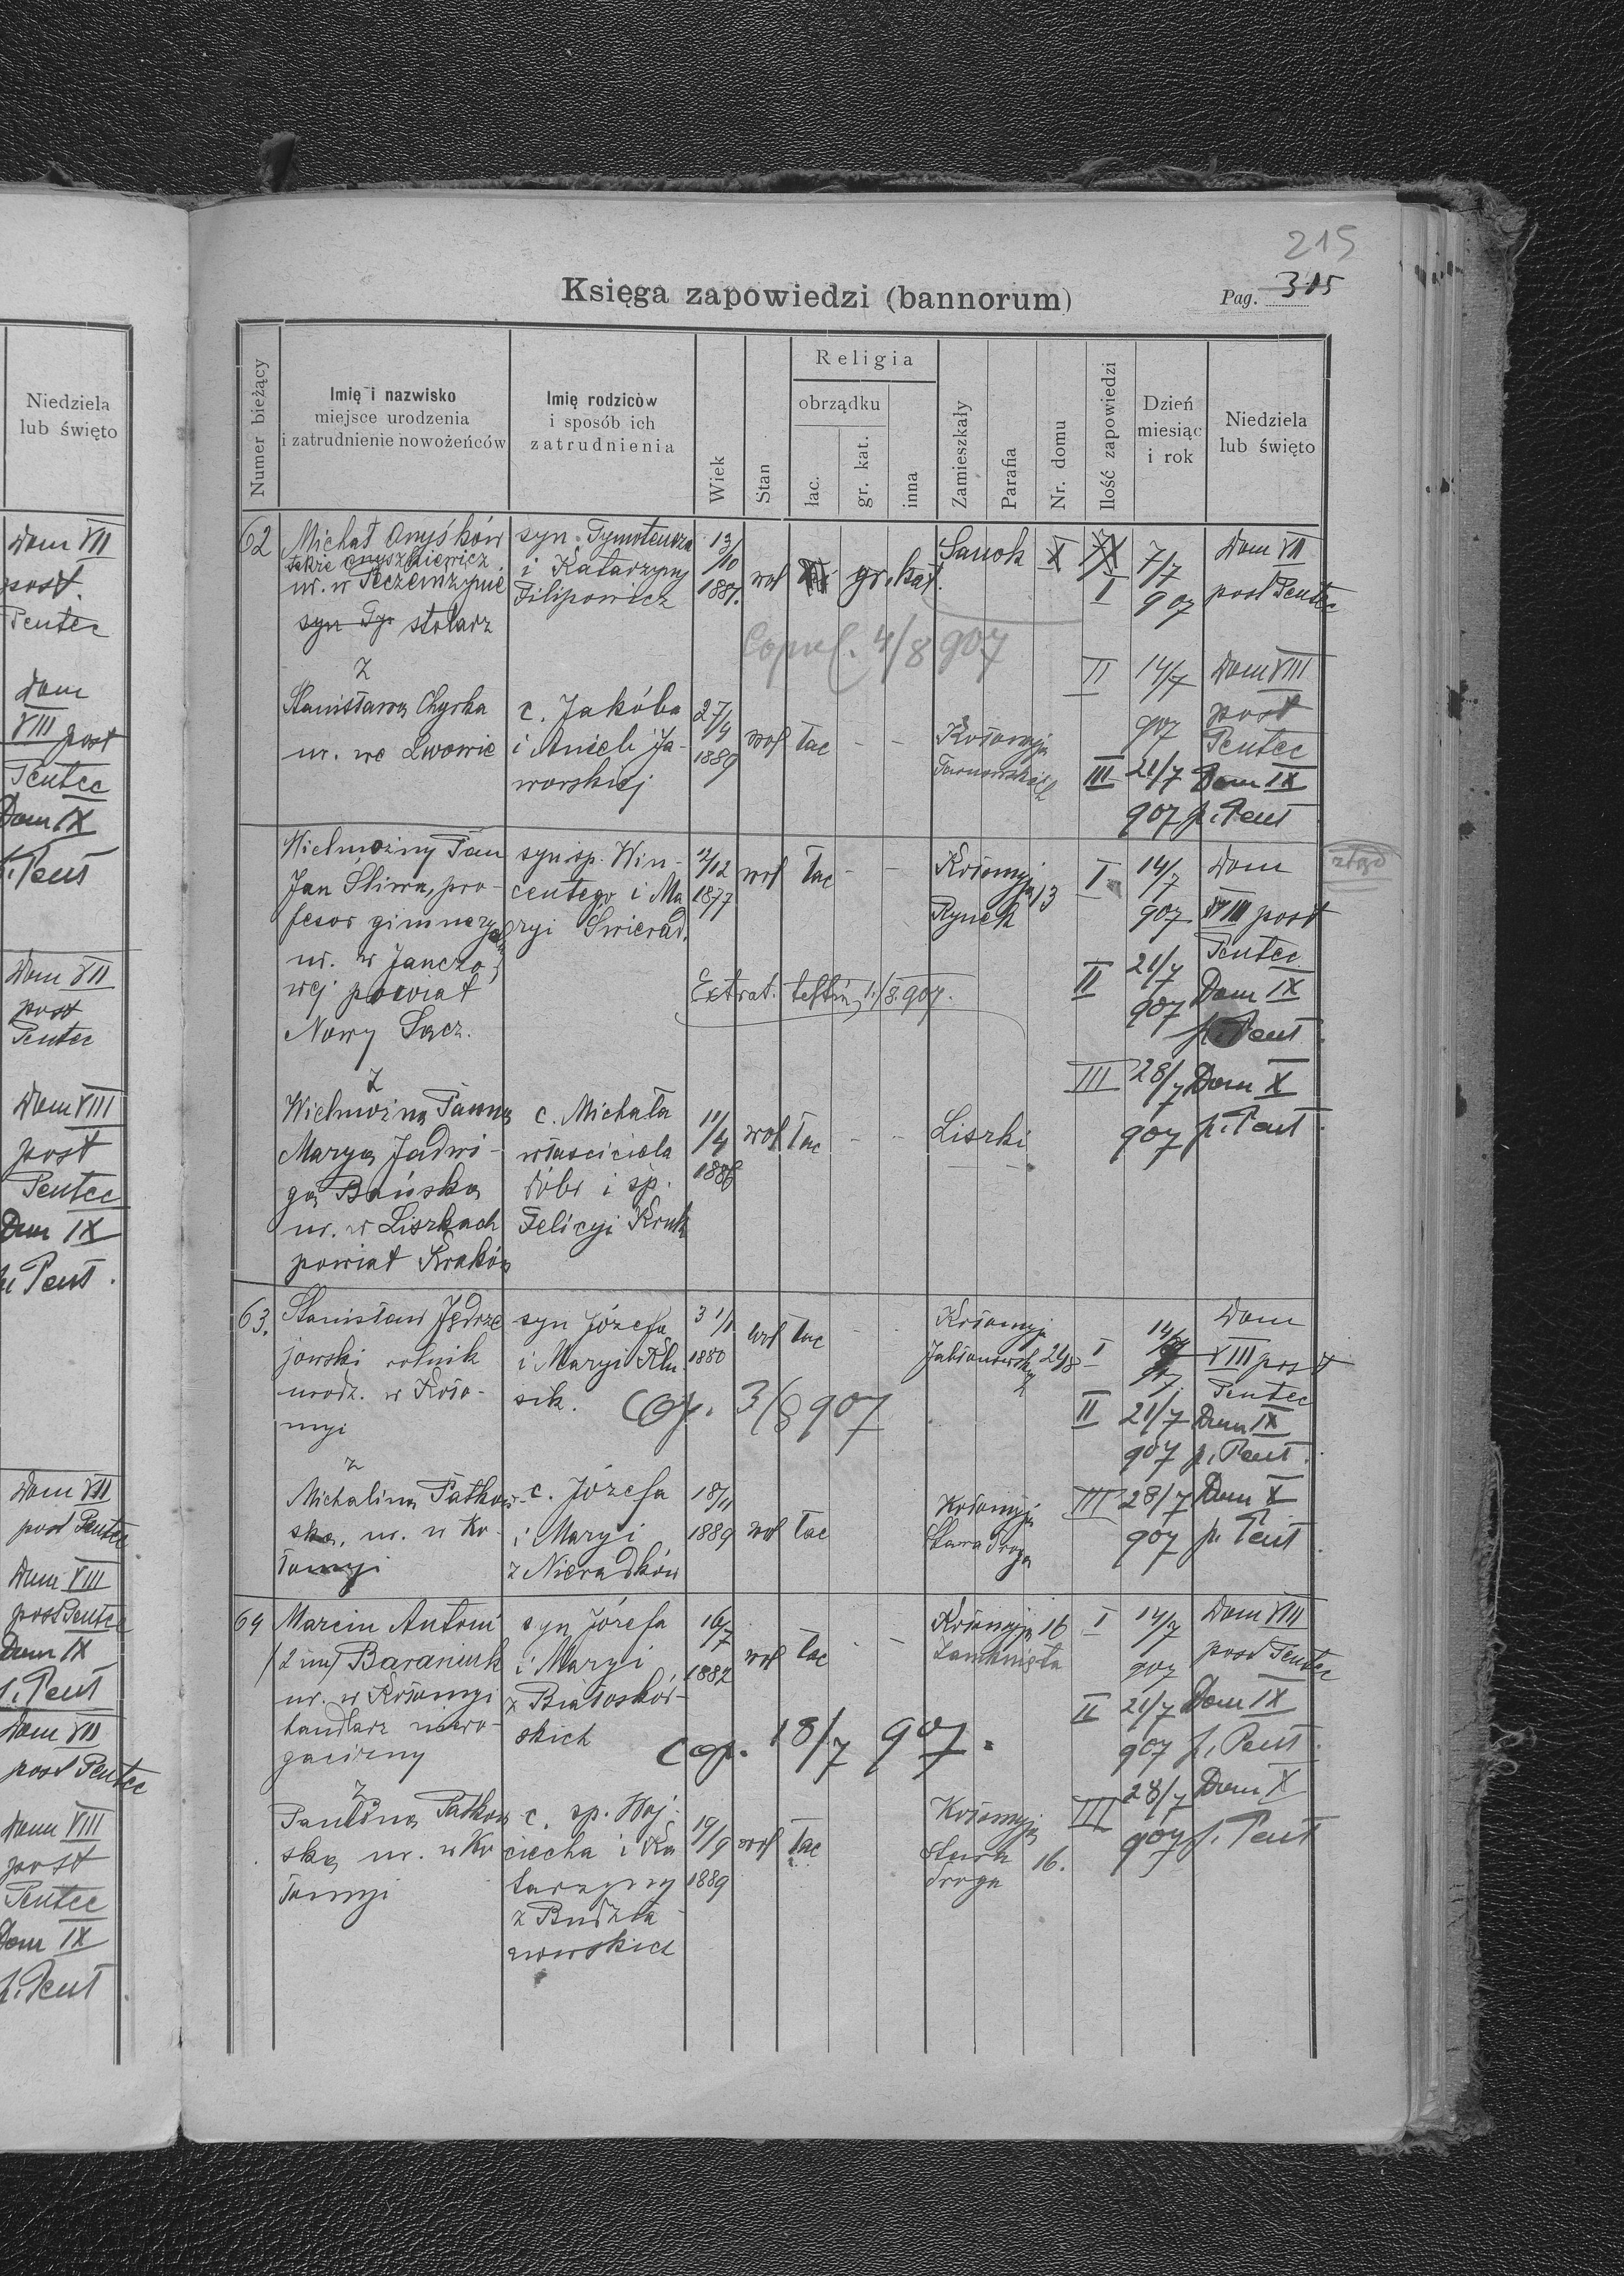 215
Księga zapowiedzi (bannorum)
Pag. 315
Niedziela
lub święto
Numer bieżący
Imię i nazwisko
miejsce urodzenia
i zatrudnienie nowożeńców
Imię rodziców
i sposób ich
zatrudnienia
Wiek
Stan
Religia
obrządku
łac.
gr. kat.
inna
Zamieszkały
Parafia
Nr. domu
Ilość zapowiedzi
Dzień
miesiąc
i rok
Niedziela
lub święto
Dom VII
post.
Pentec
Dom
VIII post
Pentec
Dom IX
p. Pent
Dom VII
post
Pentec
Dom VIII
post
Pentec
Dom IX
p. Pent.
Dom VII
post Pentec
Dom VIII
post Pentec
Dom IX
p. Pent
Dom VII
post Pentec
Dom VIII
post
Pentec
Dom IX
p. Pent.
62
Michał Onyśków
także Onyszkiewicz
ur. w Peczeniżynie
syn Ty stolarz
z
Stanisławą Chyrka
ur. we Lwowie
syn Tymoteusza
i Katarzyny
Filipowicz
13/10
1881.
wol
gr. kat.
Sanok
X
I
7/7
907
Dom VII
post Pentec
Copul. 4/8 907
II
14/7
907
Dom VIII
post
Pentec
c. Jakóba
i Anieli Ja-
worskiej
27/4
1889
wol
łac
- -
Kołomyja
Tarnowskich
III
21/7
907
Dom IX
p. Pent
Wielmożny Pan
Jan Śliwa, pro-
fesor gimnazyal.
ur. w Janczo-
wej powiat
Nowy Sącz.
z
Wielmożną Panną
Maryą Jadwi-
gą Bańską
ur. w Liszkach
powiat Kraków
syn sp. Win-
centego i Ma
ryi Świerad.
12/12
1877
wol
łac
- -
Kołomyja
Rynek
13
I
14/7
907
Dom
VIII post
Pentec
Extrad. testim. 1/8 907.
II
21/7
907
Dom IX
p. Pent.
III
28/7
907
Dom X
p. Pent.
c. Michała
właściciela
dóbr i sp.
Felicyi Kruk
11/4
1886
wol
łac
- -
Liszki
63.
Stanisław Jędrze
jowski rolnik
urodz. w Koło-
myi
z
Michaliną Patkow-
ską, ur. w Ko-
łomyi
syn Józefa
i Maryi Klu-
sik.
31/1
1880
wol
łac
-
Kołomyja
248
I
14/7
907
Dom
VIII post
Pentec
Cop. 3/8 907
II
21/7
907
Dom IX
p. Pent.
c. Józefa
i Maryi
z Nieradków
18/11
1889
wol
łac
Kołomyja
Stara droga
III
28/7
907
Dom X
p. Pent
64
Marcin Antoni
/2 im/ Baraniuk
ur. w Kołomyi
handlarz niero-
gacizny
z
Pauliną Patkow
ską ur. w Ko
łomyi
syn Józefa
i Maryi
z Białoskór-
skich
16/7
1882
wol
łac
- -
Kołomyja
Zamknięta
16
I
14/7
907
Dom VIII
post Pentec
II
21/7
907
Dom IX
p. Pent.
Cop. 18/7 907.
c. sp. Woj-
ciecha i Ka
tarzyny
19/9
1889
wol
łac
Kołomyja
Stara
droga
16.
III
28/7
907
Dom X
p. Pent